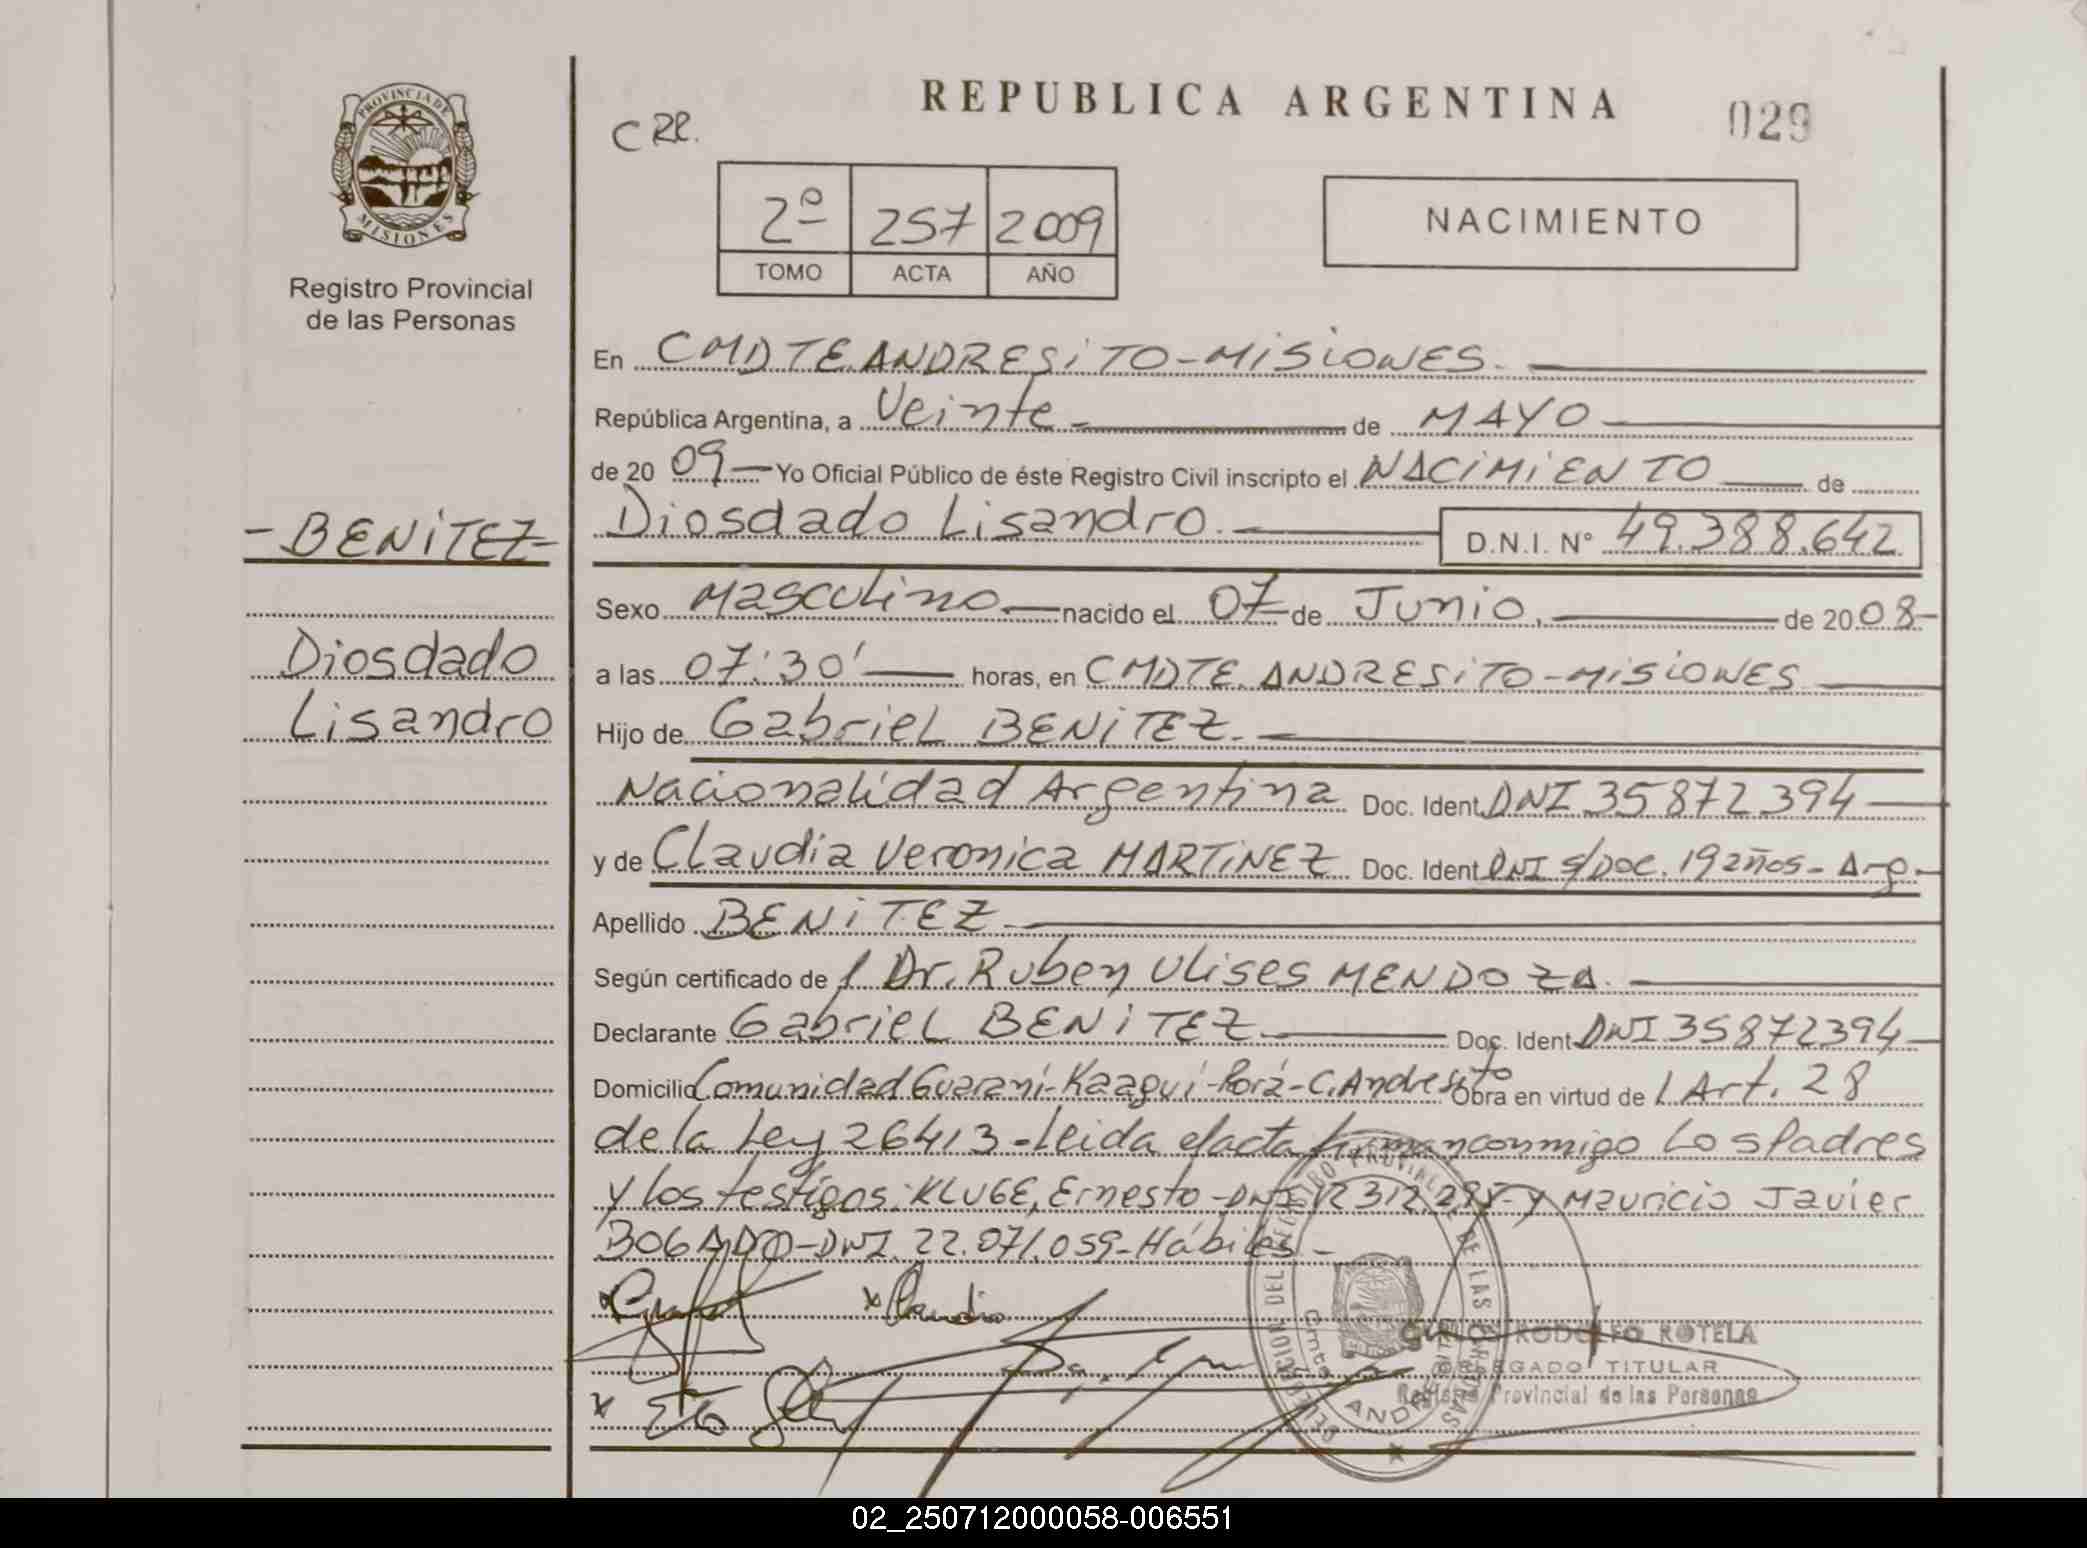 REPUBLICA ARGENTINA
029
PROVINCIA DE
MISIONES
Registro Provincial
de las Personas
2º 257 2009
TOMO ACTA AÑO
NACIMIENTO
En CMDTE ANDRESITO-MISIONES.
República Argentina, a Veinte de MAYO
de 20 09 Yo Oficial Público de éste Registro Civil inscripto el NACIMIENTO de
-BENITEZ-
Diosdado Lisandro. D.N.I. N° 49.388.642
Sexo Masculino nacido el 07 de Junio, de 20 08-
Diosdado
Lisandro
a las 07:30' horas, en CMDTE. ANDRESITO-MISIONES
Hijo de Gabriel BENITEZ.
Nacionalidad Argentina Doc. Ident DNI 35872394
y de Claudia Veronica MARTINEZ Doc. Ident DNI S/Doc. 19 años - Arg.
Apellido BENITEZ
Según certificado de l Dr. Ruben Ulises MENDOZA.
Declarante Gabriel BENITEZ Doc. Ident DNI 35872394
Domicilio Comunidad Guaraní-Kaaguí-Porá-C. Andresito Obra en virtud de l Art. 28
de la Ley 26413 - Leida el acta firman conmigo Los Padres
y los testigos: KLUGE, Ernesto - DNI 12312 y Mauricio Javier
BOGADO-DNI. 22.071.059-Hábiles-
x x Claudia
x
RODOLFO ROTELA
DELEGADO TITULAR
Registro Provincial de las Personas
02_250712000058-006551